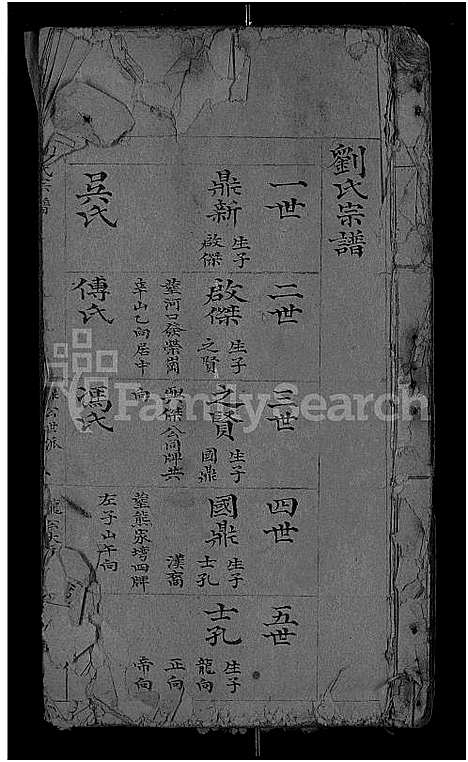 劉氏宗譜
一世
鼎新 生子 啟傑
吳氏
二世
啟傑 生子 之賢
葬河口發榮崗
辛山乙向居中
傅氏
三世
之賢 生子 國鼎
公同牌共
向
馮氏
四世
國鼎 生子 士孔
漢裔
葬熊家塆四牌
左子山午向
五世
士孔 生子
龍向
正向
帝向
FamilySearch